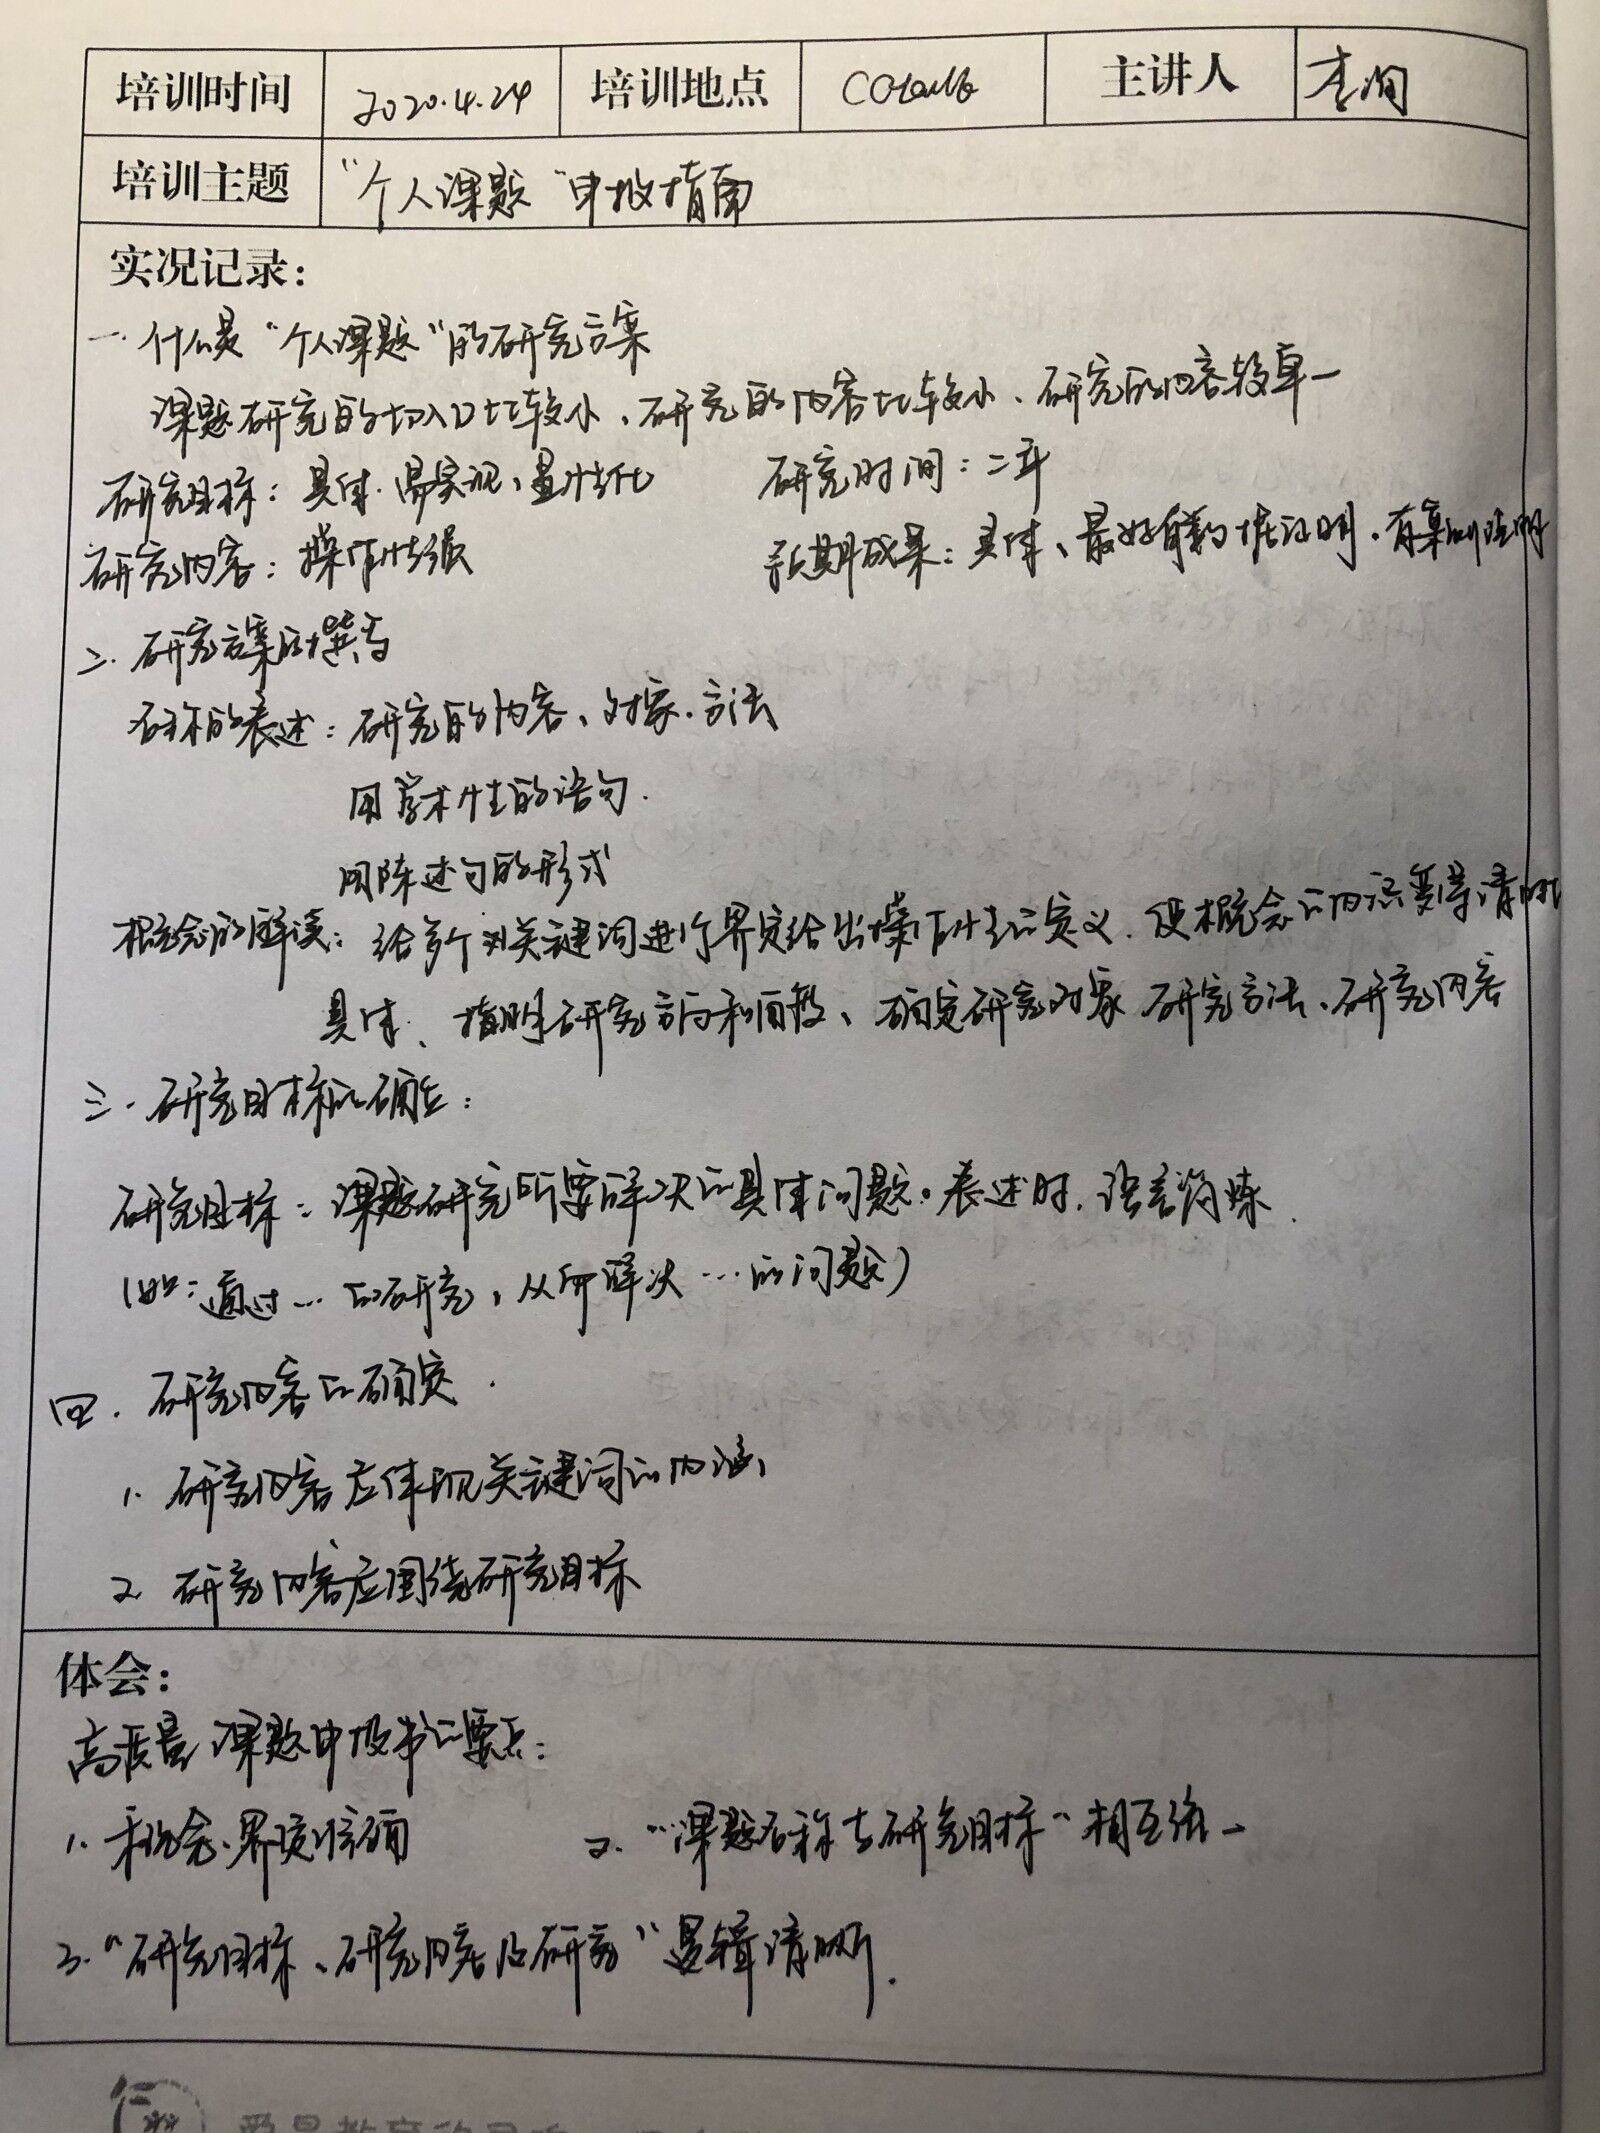 培训时间 2020.4.24 培训地点 主讲人 李
培训主题 "个人课题"申报指南
实况记录：
一. 什么是"个人课题"的研究方案
课题研究的切入口比较小、研究的内容比较小、研究的内容较单一
研究目标：具体、易实现、量性化 研究时间：二年
研究内容：操作性强 预期成果：具体、最好有数据证明、有案例证明
二. 研究方案的撰写
名称的表述：研究的内容、对象、方法
用学术性的语句.
用陈述句的形式
概念的解读：给多个对关键词进行界定给出操作性的定义、使概念的内涵变得清晰
具体、指明研究方向和角度、确定研究对象 研究方法、研究内容
三. 研究目标的确立：
研究目标：课题研究所要解决的具体问题。表述时，语言简炼.
(如：通过…的研究，从而解决…的问题)
四. 研究内容的确定.
1. 研究内容应体现关键词的内涵、
2. 研究内容应围绕研究目标
体会：
高质量课题申报书的要点：
1. 概念、界定准确 2. "课题名称与研究目标"相互统一
3. "研究目标、研究内容及研究"逻辑清晰.